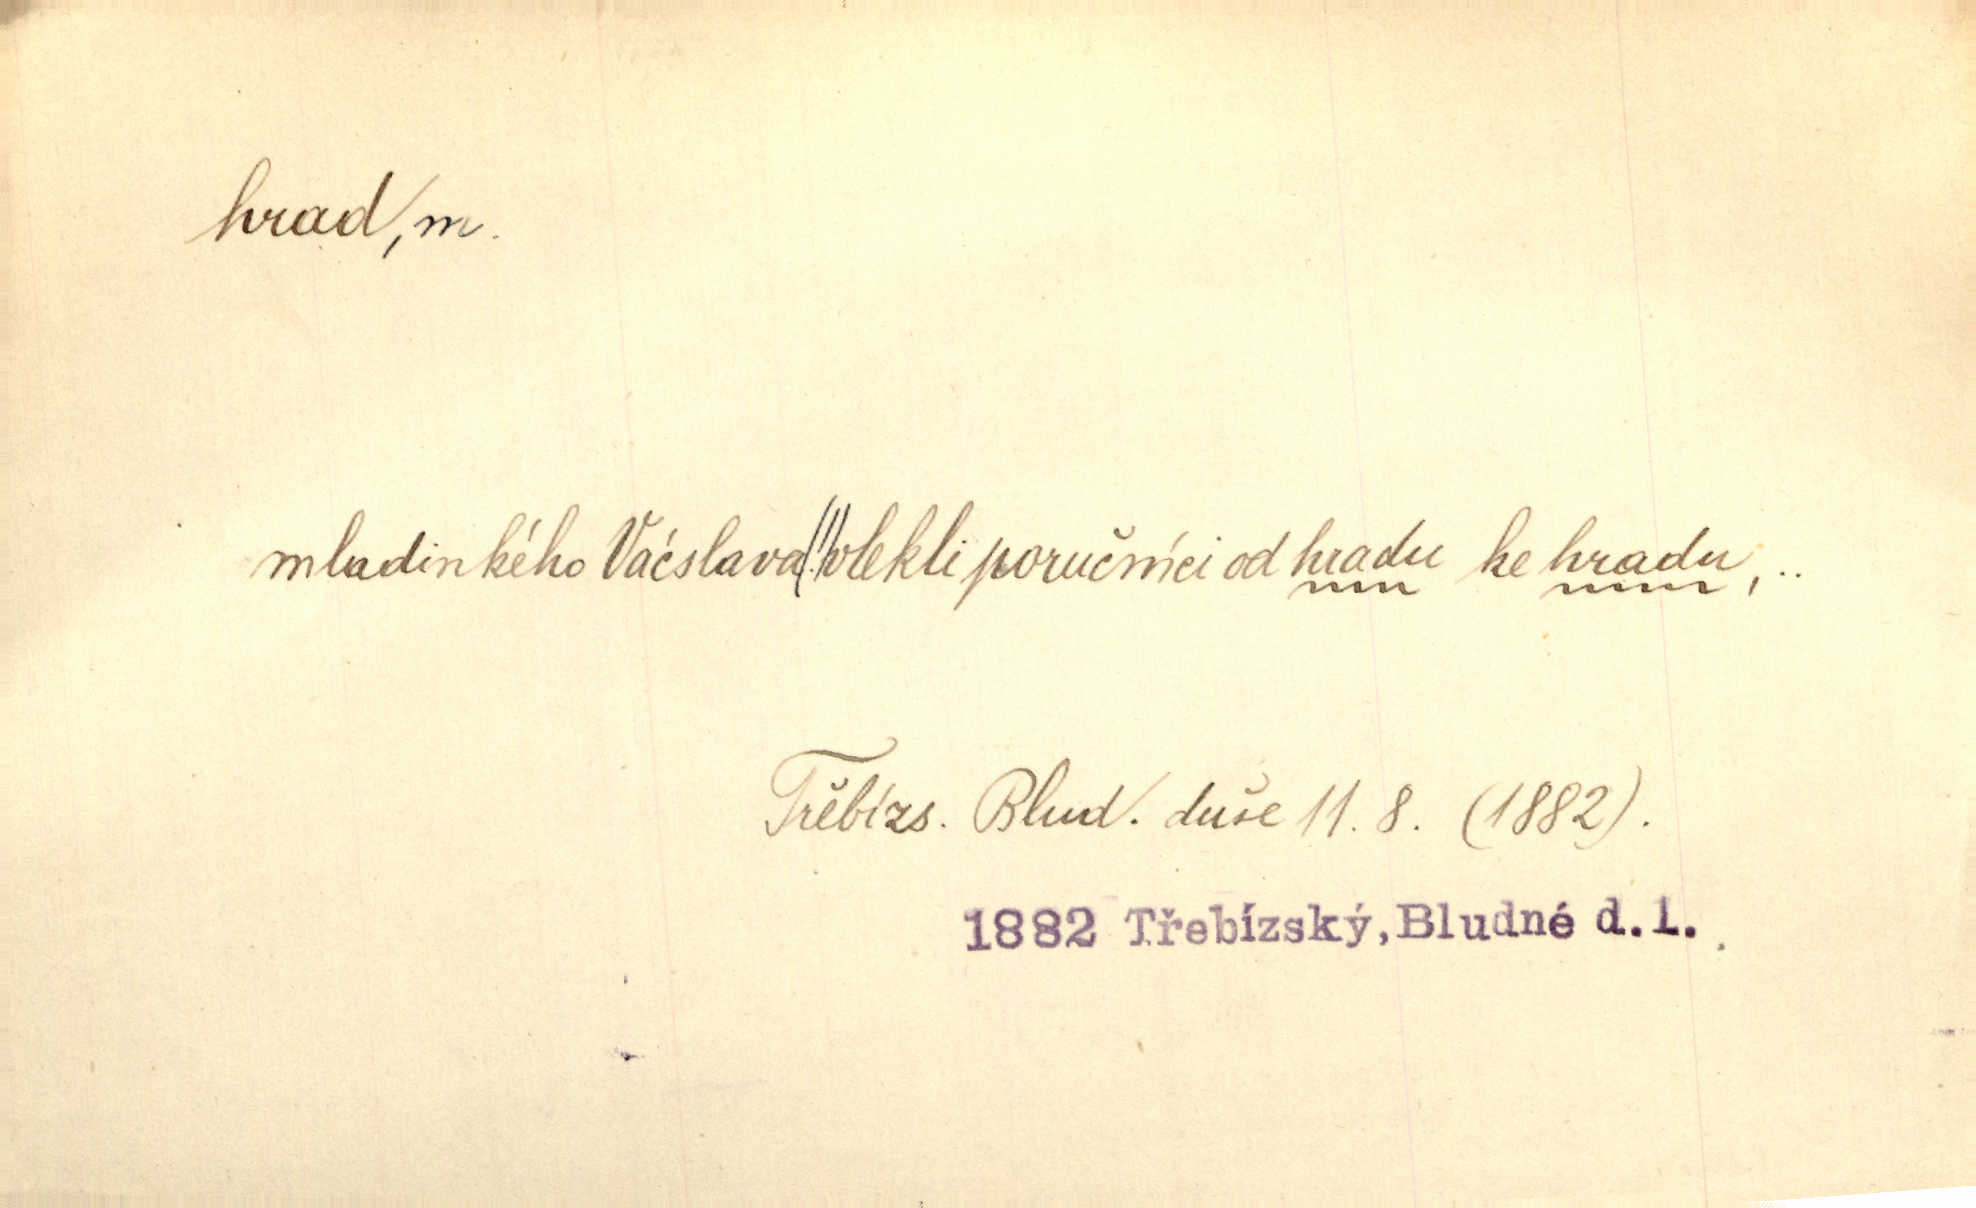 hrad, m.
mladinkého Václava vlekli poručníci od hradu ke hradu, ..
Třebízs. Blud. duše 11. 8. (1882).
1882 Třebízský, Bludné d.1.